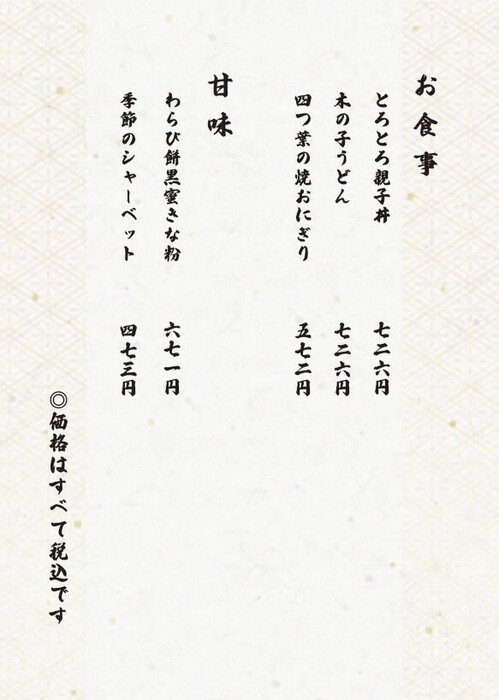 お食事
とろとろ親子丼 七二六円
木の子うどん 七二六円
四つ葉の焼おにぎり 五七二円
甘味
わらび餅黒蜜きな粉 六七一円
季節のシャーベット 四七三円
◎価格はすべて税込です